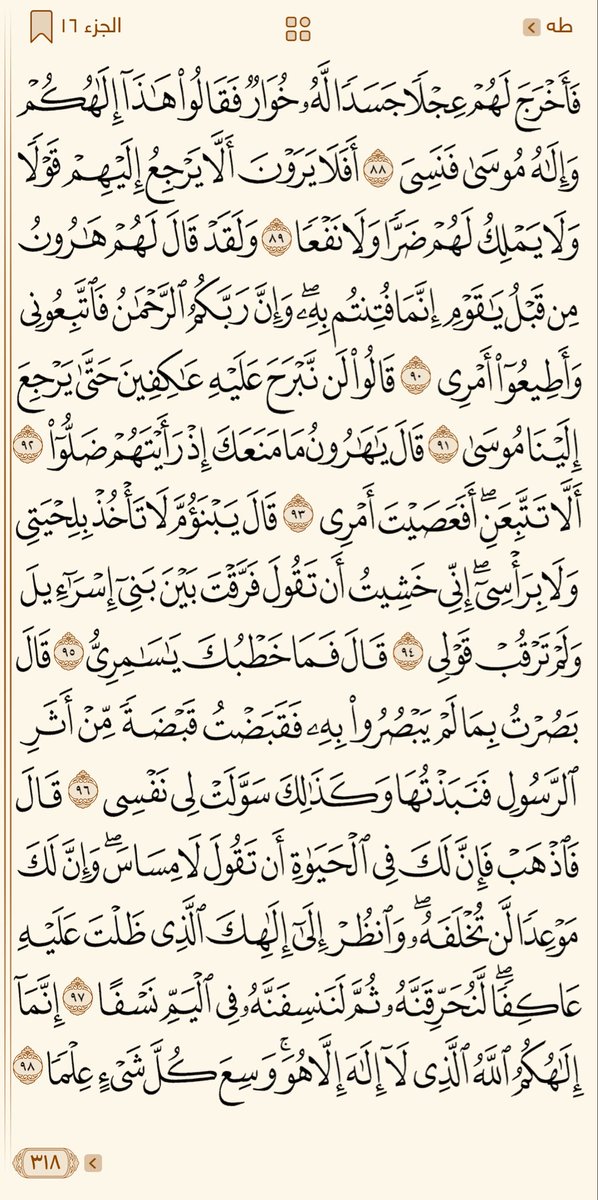 طه
الجزء ١٦
فَأَخْرَجَ لَهُمْ عِجْلًا جَسَدًا لَّهُۥ خُوَارٌ فَقَالُوا۟ هَـٰذَآ إِلَـٰهُكُمْ
وَإِلَـٰهُ مُوسَىٰ فَنَسِىَ ٨٨ أَفَلَا يَرَوْنَ أَلَّا يَرْجِعُ إِلَيْهِمْ قَوْلًا
وَلَا يَمْلِكُ لَهُمْ ضَرًّا وَلَا نَفْعًا ٨٩ وَلَقَدْ قَالَ لَهُمْ هَـٰرُونُ
مِن قَبْلُ يَـٰقَوْمِ إِنَّمَا فُتِنتُم بِهِۦ ۖ وَإِنَّ رَبَّكُمُ ٱلرَّحْمَـٰنُ فَٱتَّبِعُونِى
وَأَطِيعُوٓا۟ أَمْرِى ٩٠ قَالُوا۟ لَن نَّبْرَحَ عَلَيْهِ عَـٰكِفِينَ حَتَّىٰ يَرْجِعَ
إِلَيْنَا مُوسَىٰ ٩١ قَالَ يَـٰهَـٰرُونُ مَا مَنَعَكَ إِذْ رَأَيْتَهُمْ ضَلُّوٓا۟ ٩٢
أَلَّا تَتَّبِعَنِ ۖ أَفَعَصَيْتَ أَمْرِى ٩٣ قَالَ يَبْنَؤُمَّ لَا تَأْخُذْ بِلِحْيَتِى
وَلَا بِرَأْسِىٓ ۖ إِنِّى خَشِيتُ أَن تَقُولَ فَرَّقْتَ بَيْنَ بَنِىٓ إِسْرَٰٓءِيلَ
وَلَمْ تَرْقُبْ قَوْلِى ٩٤ قَالَ فَمَا خَطْبُكَ يَـٰسَـٰمِرِىُّ ٩٥ قَالَ
بَصُرْتُ بِمَا لَمْ يَبْصُرُوا۟ بِهِۦ فَقَبَضْتُ قَبْضَةً مِّنْ أَثَرِ
ٱلرَّسُولِ فَنَبَذْتُهَا وَكَذَٰلِكَ سَوَّلَتْ لِى نَفْسِى ٩٦ قَالَ
فَٱذْهَبْ فَإِنَّ لَكَ فِى ٱلْحَيَوٰةِ أَن تَقُولَ لَا مِسَاسَ ۖ وَإِنَّ لَكَ
مَوْعِدًا لَّن تُخْلَفَهُۥ ۖ وَٱنظُرْ إِلَىٰٓ إِلَـٰهِكَ ٱلَّذِى ظَلْتَ عَلَيْهِ
عَاكِفًا ۖ لَّنُحَرِّقَنَّهُۥ ثُمَّ لَنَنسِفَنَّهُۥ فِى ٱلْيَمِّ نَسْفًا ٩٧ إِنَّمَآ
إِلَـٰهُكُمُ ٱللَّهُ ٱلَّذِى لَآ إِلَـٰهَ إِلَّا هُوَ ۚ وَسِعَ كُلَّ شَىْءٍ عِلْمًا ٩٨
٣١٨